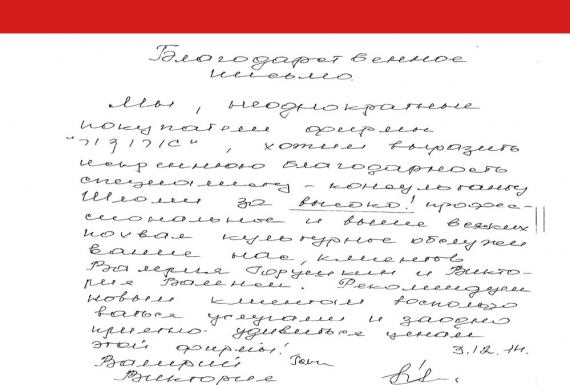 Благодарственное
письмо.
Мы, неоднократные
покупатели фирмы
, хотим выразить
искреннюю благодарность
специалисту - консультанту
за высоко! профес-
сиональное и выше всяких
похвал культурное обслужи
вание нас, клиентов
Валерия и Викто-
рия . Рекомендуем
новым клиентам воспользо
ваться услугами и заодно
приятно удивиться ценам
этой фирмы!
3.12.14.
Валерий
Виктория